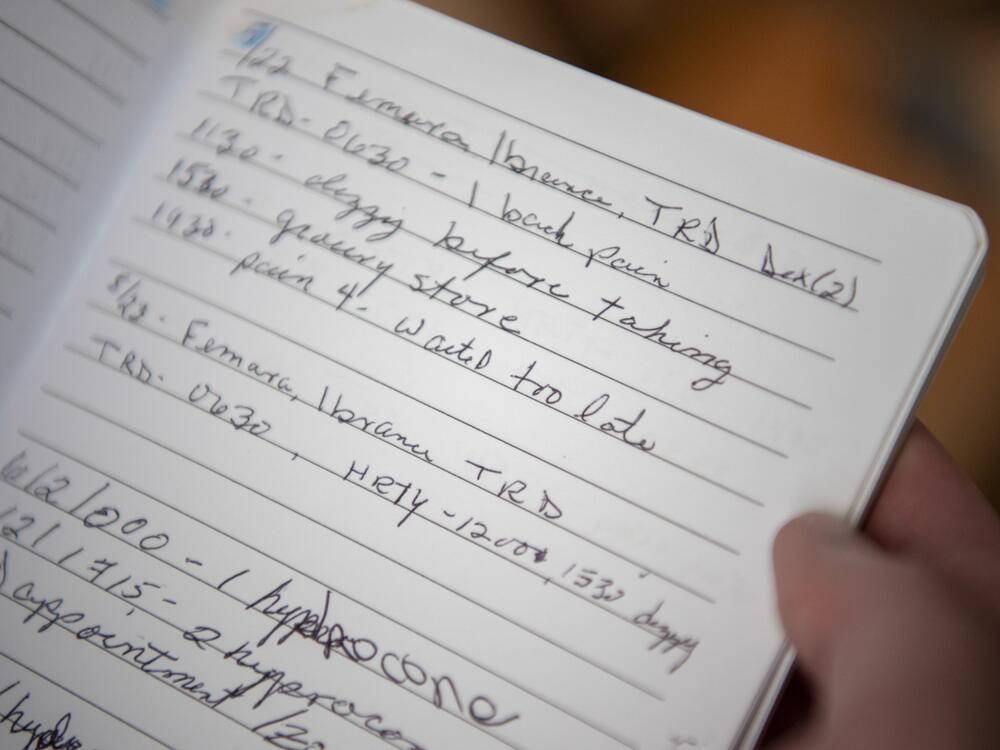 /22 Femara Ibrance, TRD Dex(2)
TRD- 0630 - 1 back pain
1130 - dizzy before taking
1530 - grocery store
1930 - pain 4. waited too late
8/23 - Femara, Ibrance TRD
TRD- 0630, 1200, 1530 dizzy
6/2/1200 - 1 hydrocone
12/1715 - 2 hyproco
appointment